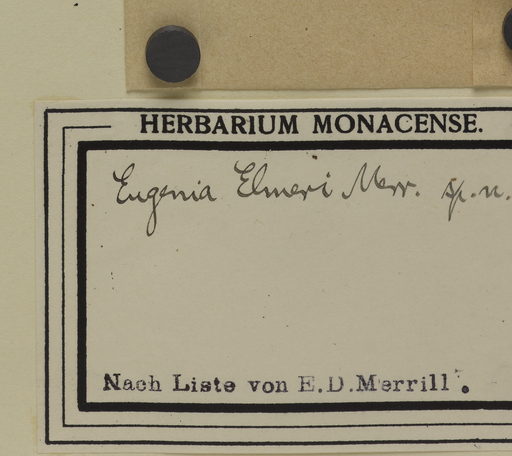 HERBARIUM MONACENSE.
Eugenia Elmeri Merr. sp. n.
Nach Liste von E.D.Merrill.